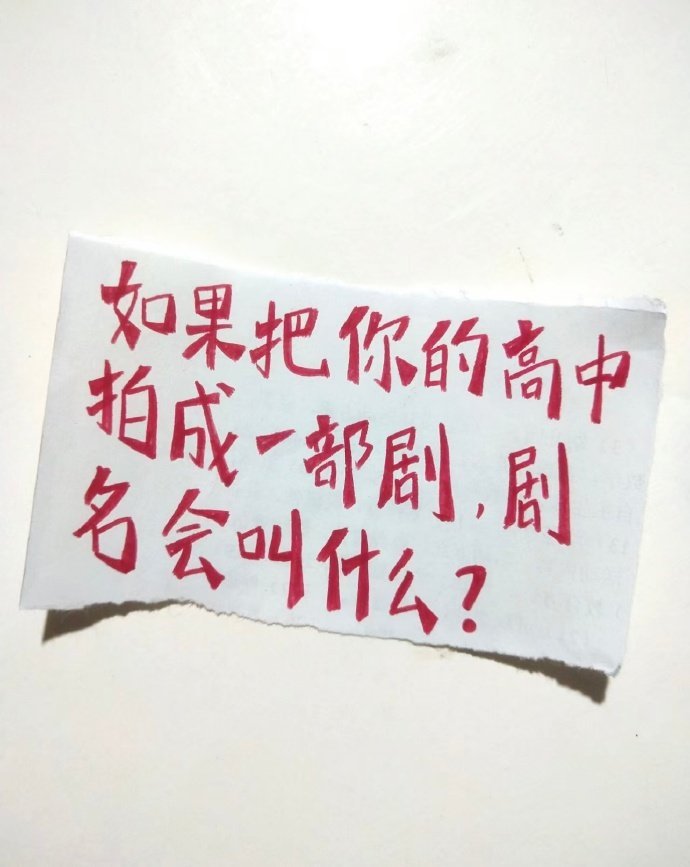 如果把你的高中
拍成一部剧,剧
名会叫什么?